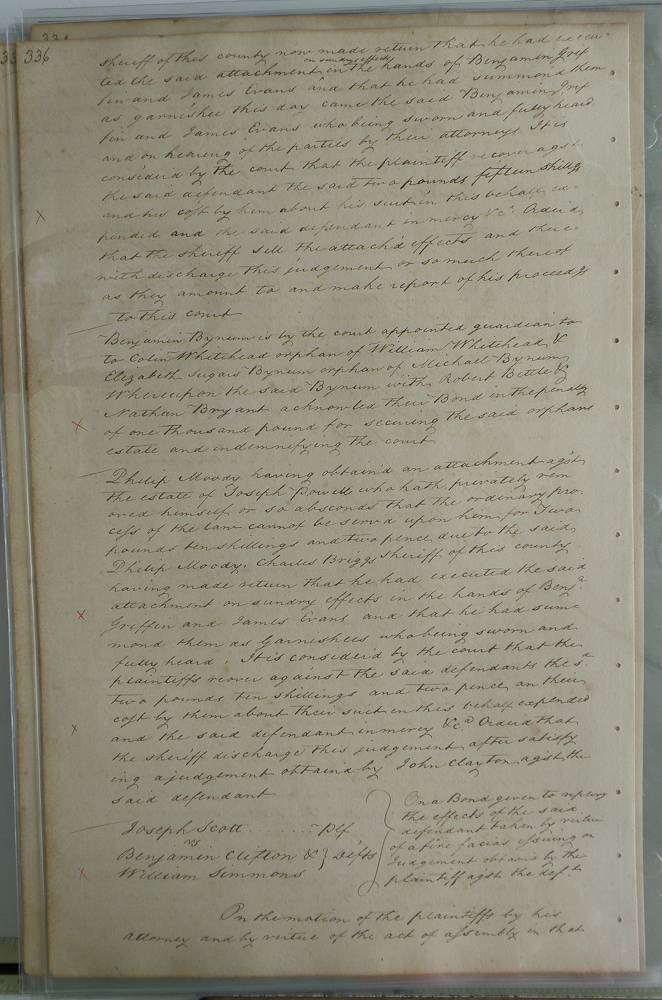 336
sheriff of this county now made return that he had execu-
on sundry effects
ted the said attachment in the hands of Benjamin Grif
fin and James Evans and that he had summond them
as garnishee this day came the said Benjamin Grif
fin and James Evans who being sworn and fully heard
and on hearing of the parties by their attorneys It is
considerd by the court that the plaintiff recover agst
the said defendant the said two pounds fifteen shillgs
and his cost by him about his suit in this behalf ex-
pended and the said defendant in mercy &ca. Orderd
that the sheriff sell the attach'd effects and there-
with discharge this judgement or so much thereof
as they amount to and make report of his proceedgs
to this court
Benjamin Bynum is by the court appointed guardian to
to Colin Whitehead orphan of William Whitehead, &
Elizabeth Sugars Bynum orphan of Michael Bynum
Whereupon the said Bynum with Robert Bittle &
Nathan Bryant acknowled their Bond in the penalty
of one thousand pound for securing the said orphans
estate and indemnifying the court
Philip Moody having obtain'd an attachment agst
the estate of Joseph Powell who hath privately rem
oved himself or so absconds that the ordinary pro-
cess of the law cannot be serv'd upon him for Two
pounds ten shillings and two pence due to the said
Philip Moody. Charles Briggs sheriff of this county
having made return that he had executed the said
attachment on sundry effects in the hands of Benja.
Griffin and James Evans and that he had sum-
mond them as Garnishees who being sworn and
fully heard. It is considerd by the court that the
plaintiffs recover against the said defendants the sd.
two pounds ten shillings and two pence an their
cost by them about their suit in this behalf expended
and the said defendant in mercy &ca Orderd that
the sheriff discharge this judgement after satisfy
ing a judgement obtain'd by John Clayton agst the
said defendant
Joseph Scott ..... Plf
vs
Benjamin Clifton & } Defts
William Simmons
On a Bond given to replevy
the effects of the said
defendant taken by virtue
of a fire facias issuing on
Judgement obtain'd by the
plaintiff agst the deft.
On the motion of the plaintiffs by his
attorney and by virtue of the act of assembly in that